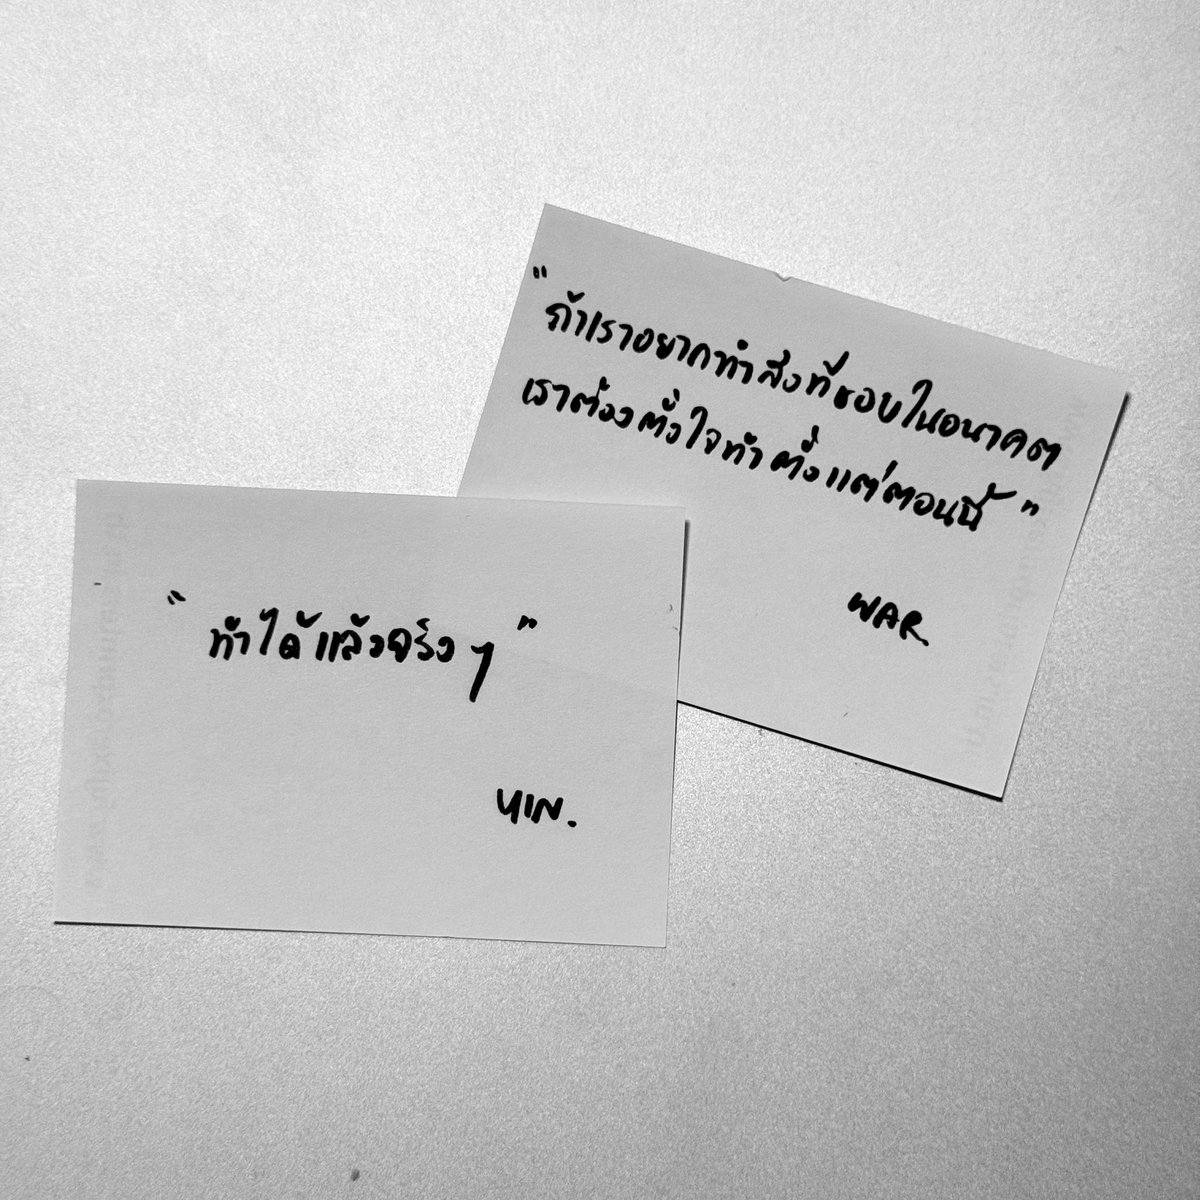 "ถ้าเราอยากทำสิ่งที่ชอบในอนาคต
เราต้องตั้งใจทำตั้งแต่ตอนนี้"
WAR.
"ทำได้แล้วจริงๆ"
YIN.